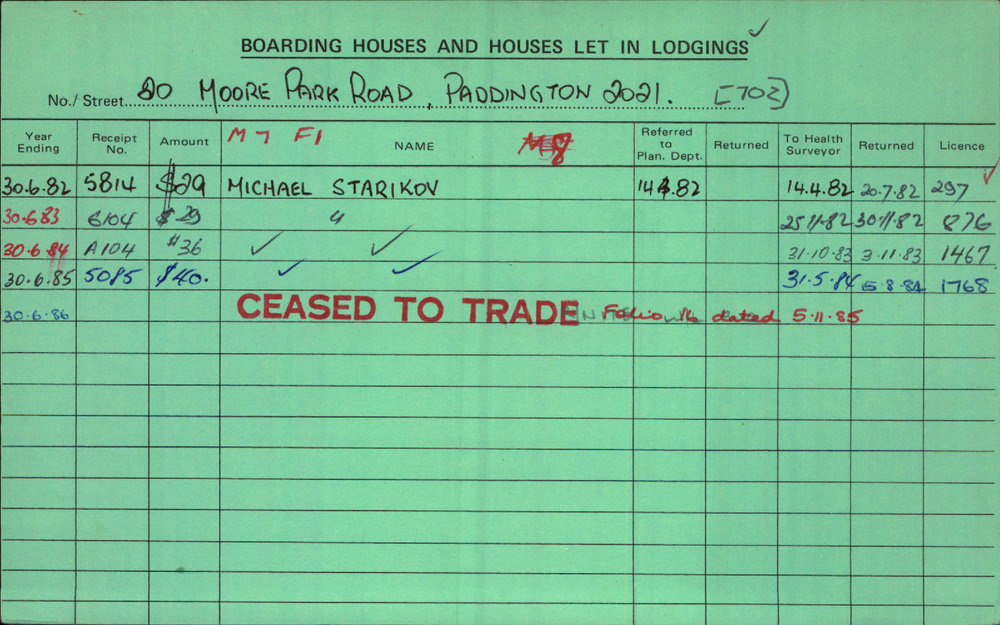 BOARDING HOUSES AND HOUSES LET IN LODGINGS ✓
No./ Street 20 MOORE PARK ROAD, PADDINGTON 2021. [702]
Year Ending Receipt No. Amount M7 F1 NAME Referred to Plan. Dept. Returned To Health Surveyor Returned Licence
30.6.82 5814 $29 MICHAEL STARIKOV 14.4.82 14.4.82 20.7.82 297 ✓
30.6.83 6104 $29 " 25.11.82 30.11.82 876
30.6.84 A104 $36 ✓ ✓ 31.10.83 3.11.83 1467
30.6.85 5085 $40. ✓ ✓ 31.5.84 15.8.84 1768
30.6.86 CEASED TO TRADE Folio 16 dated 5.11.85